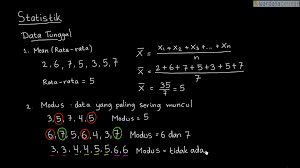 Statistik
Data Tunggal
1. Mean (Rata-rata)
2, 6, 7, 5, 3, 5, 7
Rata-rata = 5
X̄ = (x₁ + x₂ + x₃ + ... + xₙ) / n
X̄ = (2 + 6 + 7 + 5 + 3 + 5 + 7) / 7
X̄ = 35 / 7 = 5
2. Modus = data yang paling sering muncul
3, 5, 7, 4, 5 Modus = 5
6, 7, 5, 6, 4, 3, 7 Modus = 6 dan 7
3, 3, 4, 4, 5, 5, 6, 6 Modus = tidak ada